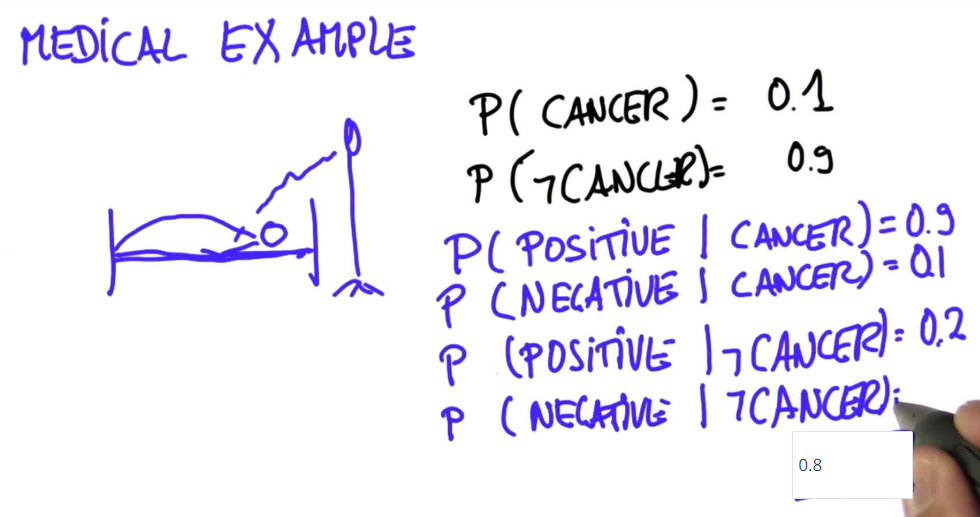 MEDICAL EXAMPLE
P( CANCER ) = 0.1
P (¬CANCER)= 0.9
P( POSITIVE | CANCER)= 0.9
P (NEGATIVE | CANCER) = 0.1
P (POSITIVE | ¬CANCER)= 0.2
P ( NEGATIVE | ¬CANCER)=
0.8